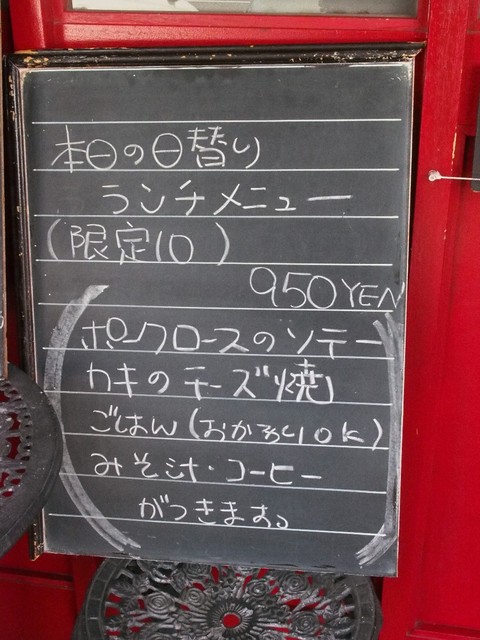 本日の日替り
ランチメニュー
(限定10 )
950YEN
ポークロースのソテー
カキのチーズ焼
ごはん(おかわりOK)
みそ汁・コーヒー
がつきます。